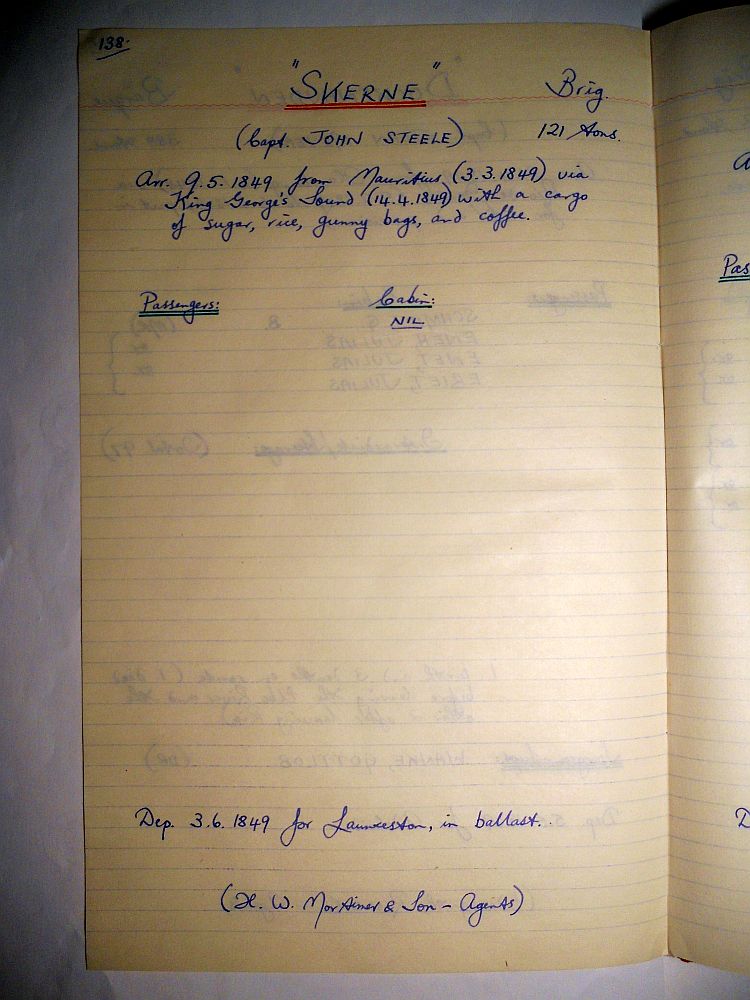 138.
"SKERNE" Brig.
(Capt. JOHN STEELE) 121 tons.
Arr. 9.5.1849 from Mauritius (3.3.1849) via
King George's Sound (14.4.1849) with a cargo
of sugar, rice, gunny bags, and coffee.
Passengers: Cabin:
NIL
Dep. 3.6.1849 for Launceston, in ballast.
(H. W. Mortimer & Son - Agents)
Pas
D